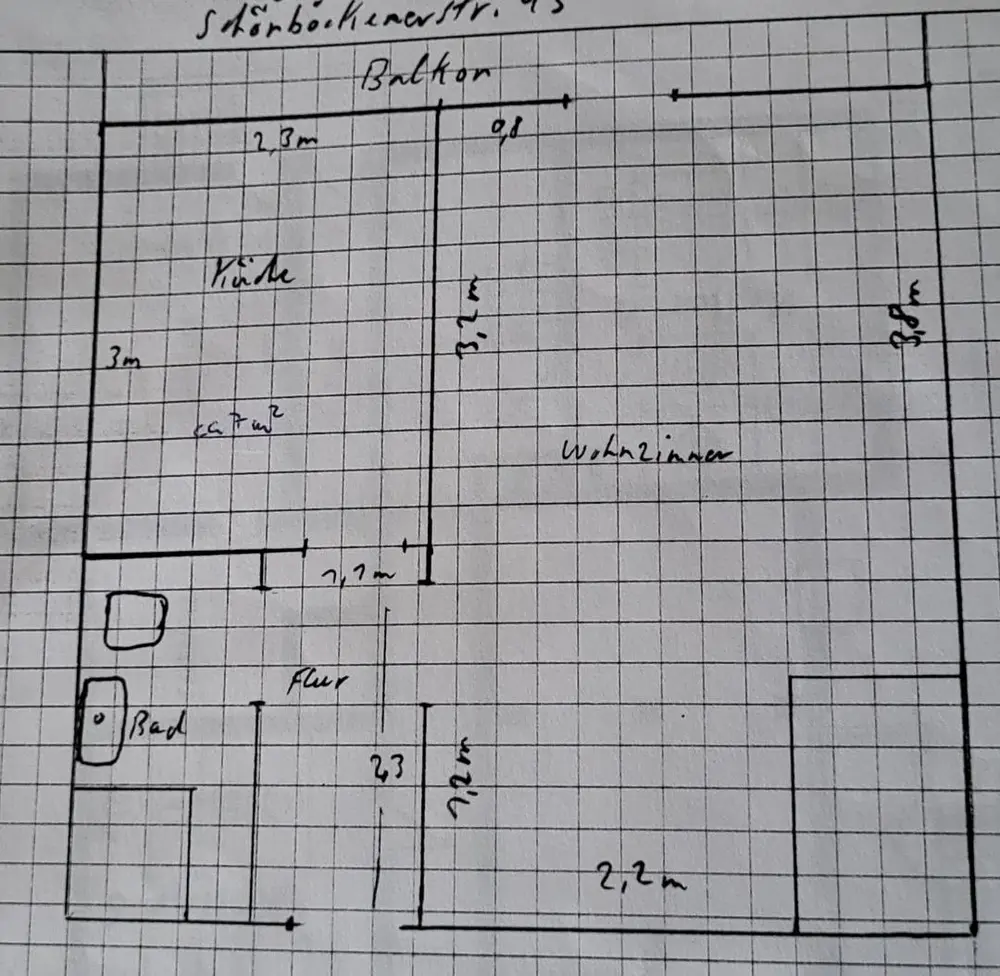 Schönböckenerstr. 43
Balkon
2,3m
0,8
Küche
3,2m
3,8m
3m
ca 7 m²
Wohnzimmer
1,1m
Flur
Bad
2,3
1,2m
2,2m